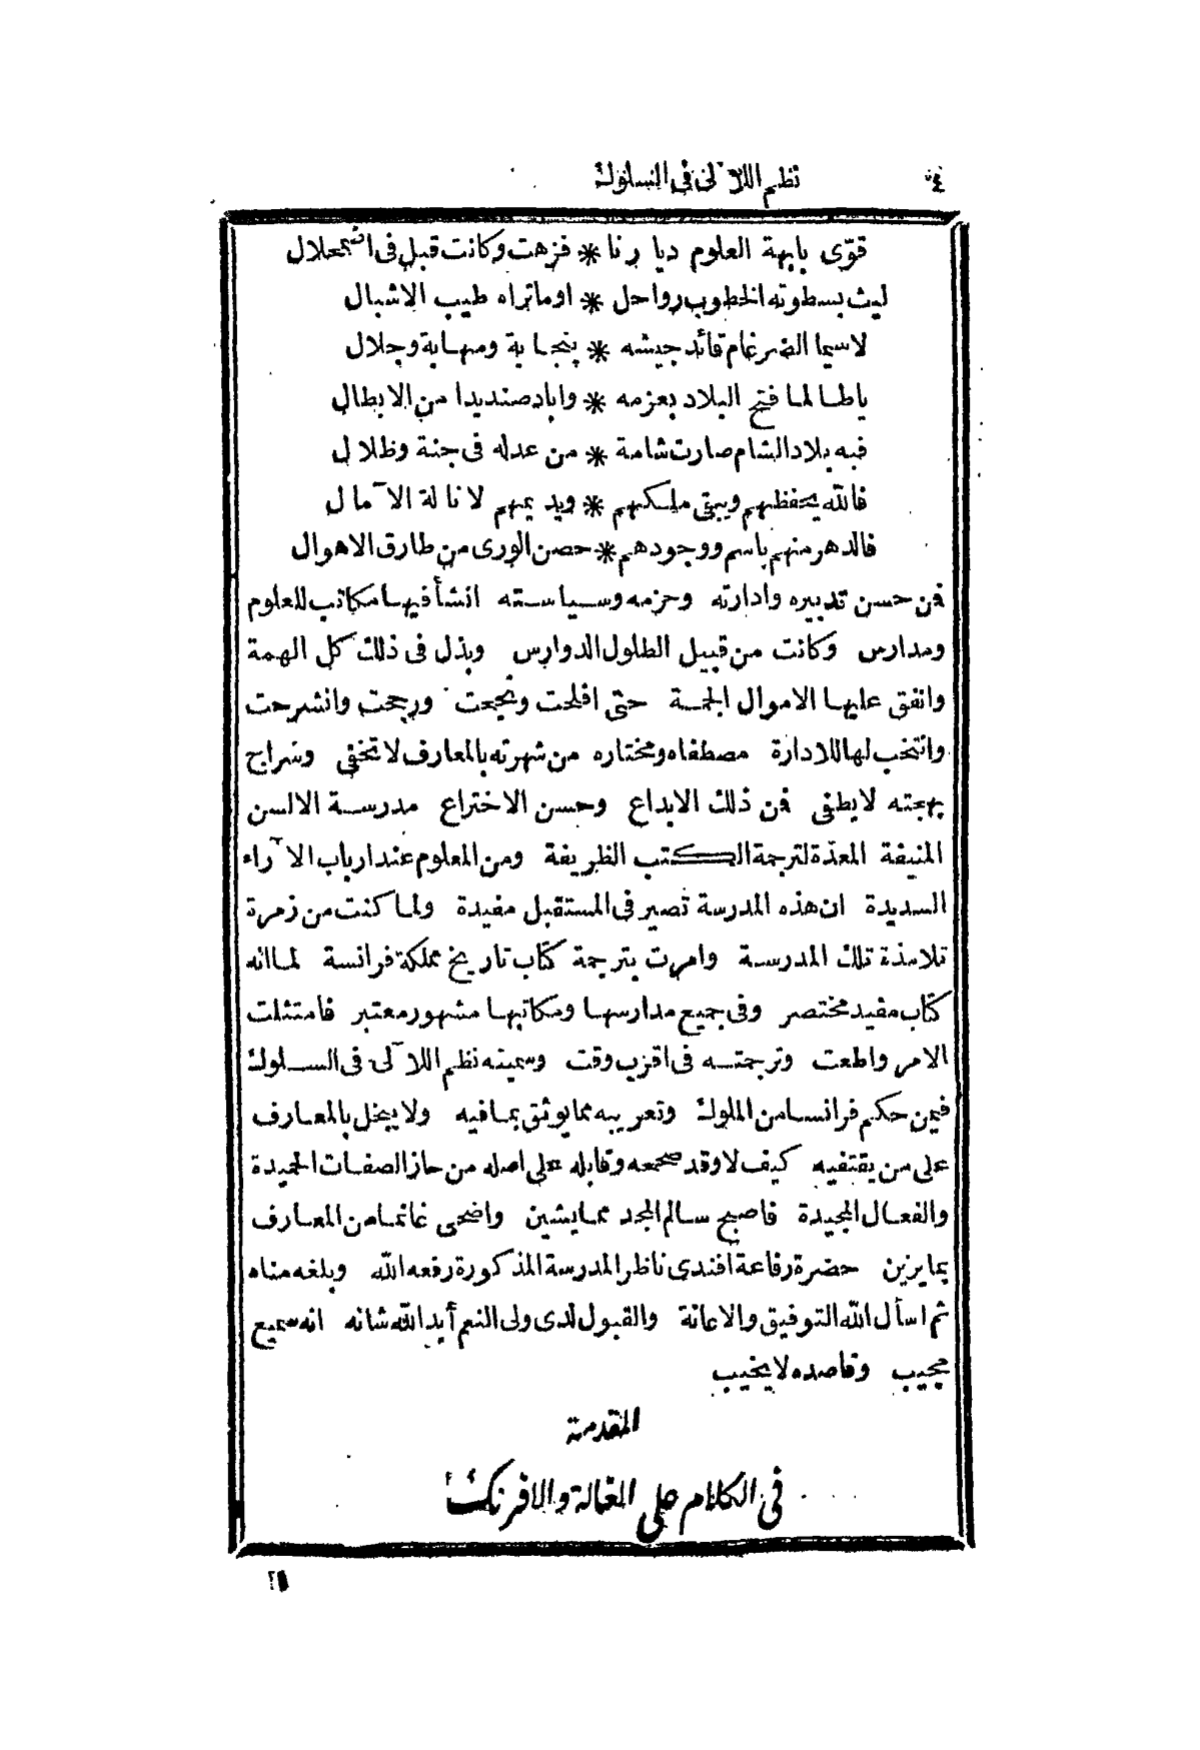 ٤ نظم اللآلى فى السلوك
قوّى بابهة العلوم ديارنا * فزهت وكانت قبل فى اضمحلال
ليث بسطوته الخطوب رواحل * اوماتراه طيب الاشبال
لاسيما الضرغام قائد جيشه * بنجابة ومهابة وجلال
ياطالما فتح البلاد بعزمه * واباد صنديدا من الابطال
فبه بلاد الشام صارت شامة * من عدله فى جنة وظلال
فالله يحفظهم ويبقى ملكهم * ويديمهم لانالة الآمال
فالدهر منهم باسم ووجودهم * حصن الورى من طارق الاهوال
فن حسن تدبيره وادارته وحزمه وسياسته انشأ فيها مكاتب للعلوم
ومدارس وكانت من قبيل الطلول الدوارس وبذل فى ذلك كل الهمة
وانفق عليها الاموال الجمة حتى افلحت ونجعت ورجحت وانشرحت
وانتخب لها للادارة مصطفاه ومختاره من شهرته بالمعارف لاتخفى وسراج
بهجته لايطفى فن ذلك الابداع وحسن الاختراع مدرسة الالسن
المنيفة المعدّة لترجمة الكتب الظريفة ومن المعلوم عند ارباب الآراء
السديدة ان هذه المدرسة تصير فى المستقبل مفيدة ولما كنت من زمرة
تلامذة تلك المدرسة وامرت بترجمة كتاب تاريخ مملكة فرانسة لما انه
كتاب مفيد مختصر وفى جميع مدارسها ومكاتبها مشهور معتبر فامتثلت
الامر واطعت وترجمته فى اقرب وقت وسميته نظم اللآلى فى السلوك
فيمن حكم فرانسا من الملوك وتعريبه مما يوثق بمافيه ولا يبخل بالمعارف
على من يقتفيه كيف لا وقد صححه وقابله على اصله من حاز الصفات الحميدة
والفعال المجيدة فاصبح سالم المجد مما يشين واضحى غانما من المعارف
بما يزين حضرة رفاعة افندى ناظر المدرسة المذكورة رفعه الله وبلغه مناه
ثم اسأل الله التوفيق والاعانة والقبول لدى ولى النعم أيد الله شانه انه سميع
مجيب وقاصده لا يخيب
المقدمة
فى الكلام على الغالة والافرنك